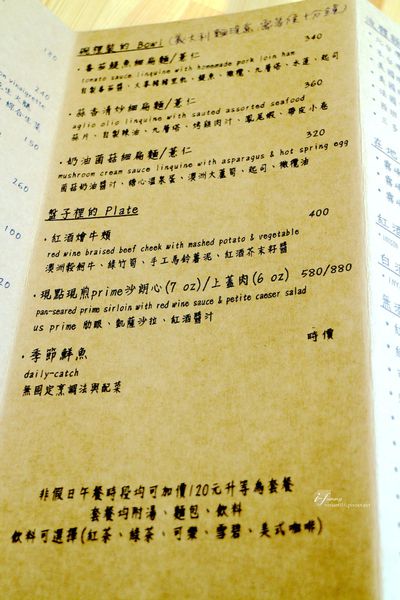 碗裡裝的 Bowl (義大利麵現煮，需等候十分鐘)
340
·番茄鯷魚細扁麵/薏仁
tomato sauce linquine with homemade pork loin ham
·蒜香清炒細扁麵/薏仁
360
aglio olio linquine with sauted assorted seafood
蒜片、自製辣油、九層塔、烤雞肉汁、鳳尾蝦、帶皮小卷
·奶油菌菇細扁麵/薏仁
320
mushroom cream sauce linquine with asparagus & hot spring egg
菌菇奶油醬汁、糖心溫泉蛋、澳洲大蘆筍、起司、橄欖油
盤子裡的 Plate
·紅酒燴牛頰
400
red wine braised beef cheek with mashed potato & vegetable
澳洲穀飼牛、綠竹筍、手工馬鈴薯泥、紅酒芥末籽醬
·現點現煎prime沙朗心(7 oz)/上蓋肉(6 oz) 580/880
pan-seared prime sirloin with red wine sauce & petite caeser salad
us prime 肋眼、凱薩沙拉、紅酒醬汁
·季節鮮魚
時價
daily-catch
無固定烹調法與配菜
非假日午餐時段均可加價120元升等為套餐
套餐均附湯、麵包、飲料
飲料可選擇(紅茶、綠茶、可樂、雪碧、美式咖啡)
180
260
100
120